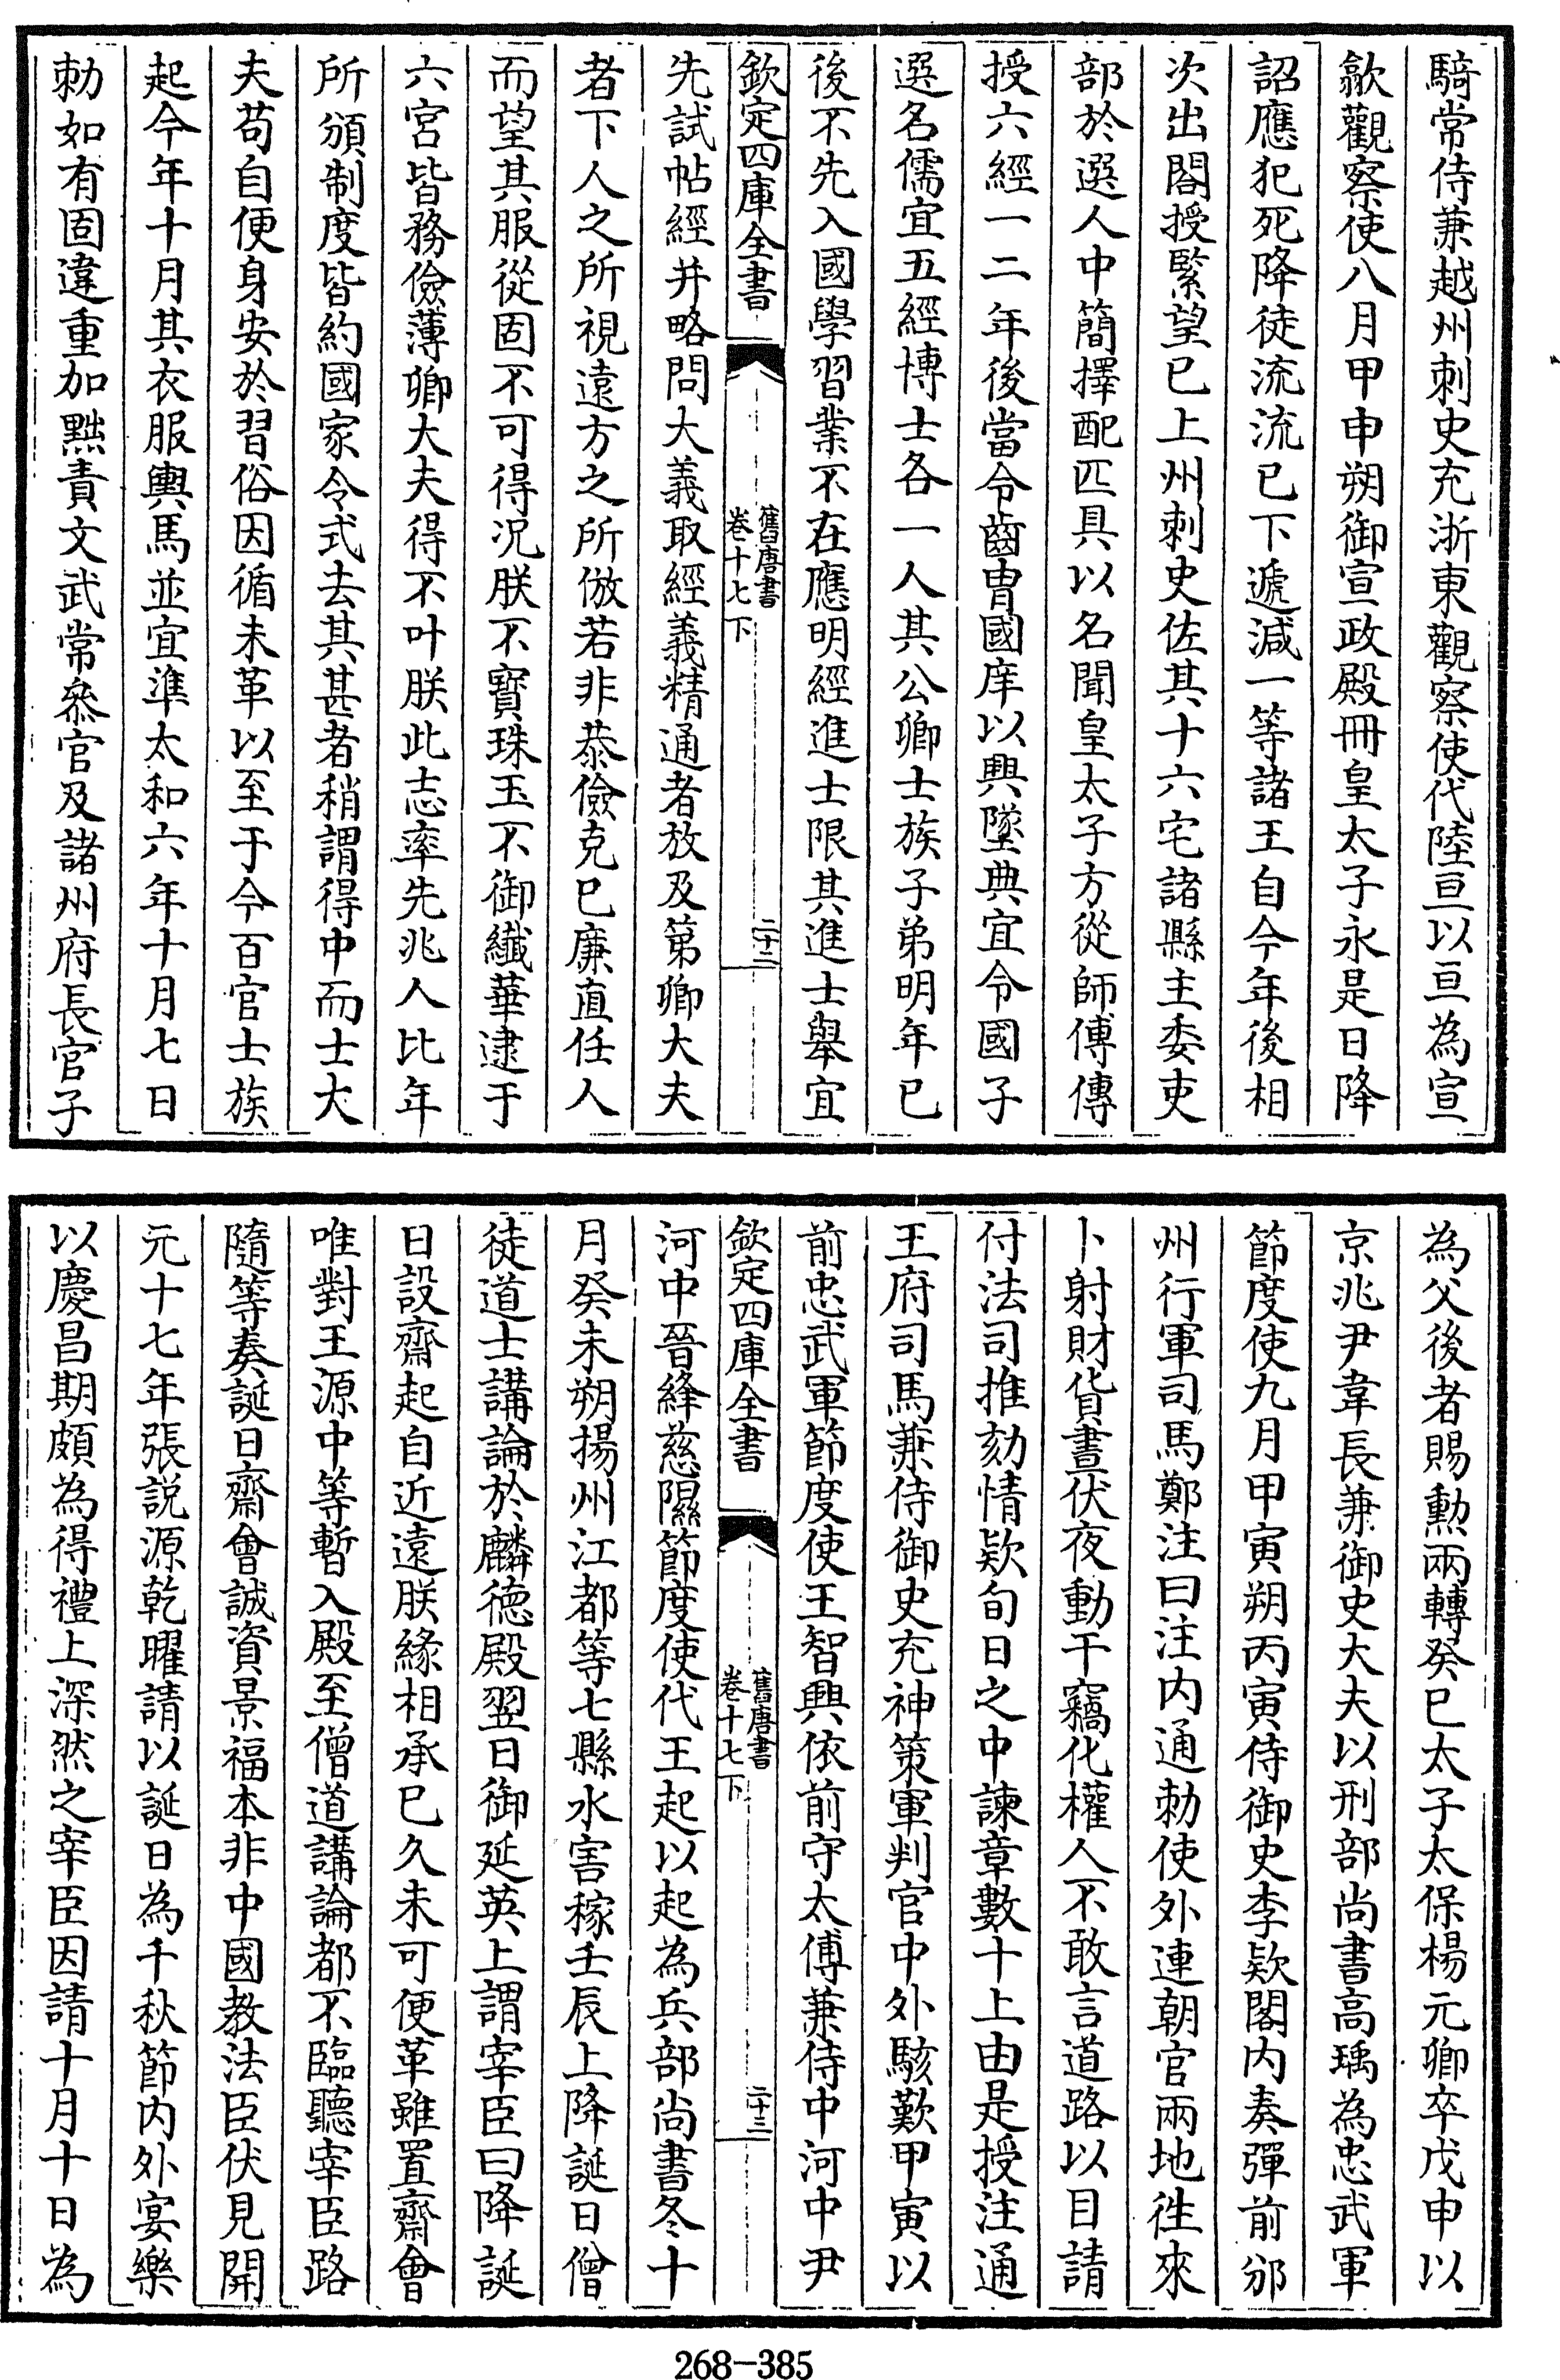 騎常侍兼越州刺史充浙東觀察使代陸亘以亘為宣
歙觀察使八月甲申朔御宣政殿冊皇太子永是日降
詔應犯死降徒流流已下遞減一等諸王自今年後相
次出閤授緊望已上州刺史佐其十六宅諸縣主委吏
部於選人中簡擇配匹具以名聞皇太子方從師傅傳
授六經一二年後當令齒胄國庠以興墜典宜令國子
選名儒宜五經博士各一人其公卿士族子弟明年已
後不先入國學習業不在應明經進士限其進士舉宜
欽定四庫全書
舊唐書
卷十七下
二十二
先試帖經并略問大義取經義精通者放及第卿大夫
者下人之所視遠方之所倣若非恭儉克已廉直任人
而望其服從固不可得况朕不寳珠玉不御纖華逮于
六宮皆務儉薄卿大夫得不叶朕此志率先兆人比年
所頒制度皆約國家令式去其甚者稍謂得中而士大
夫苟自便身安於習俗因循未革以至于今百官士族
起今年十月其衣服輿馬並宜準太和六年十月七日
勅如有固違重加黜責文武常叅官及諸州府長官子
為父後者賜勲兩轉癸巳太子太保楊元卿卒戊申以
京兆尹韋長兼御史大夫以刑部尚書高瑀為忠武軍
節度使九月甲寅朔丙寅侍御史李款閤内奏彈前邠
州行軍司馬鄭注曰注内通勅使外連朝官兩地徃來
卜射財貨晝伏夜動干竊化權人不敢言道路以目請
付法司推劾情款旬日之中諫章數十上由是授注通
王府司馬兼侍御史充神策軍判官中外駭歎甲寅以
前忠武軍節度使王智興依前守太傅兼侍中河中尹
欽定四庫全書
舊唐書
卷十七下
二十三
河中晉絳慈隰節度使代王起以起為兵部尚書冬十
月癸未朔揚州江都等七縣水害稼壬辰上降誕日僧
徒道士講論於麟德殿翌日御延英上謂宰臣曰降誕
日設齋起自近遠朕緣相承已久未可便革雖置齋會
唯對王源中等暫入殿至僧道講論都不臨聽宰臣路
隨等奏誕日齋會誠資景福本非中國教法臣伏見開
元十七年張說源乾曜請以誕日為千秋節内外宴樂
以慶昌期頗為得禮上深然之宰臣因請十月十日為
268-385